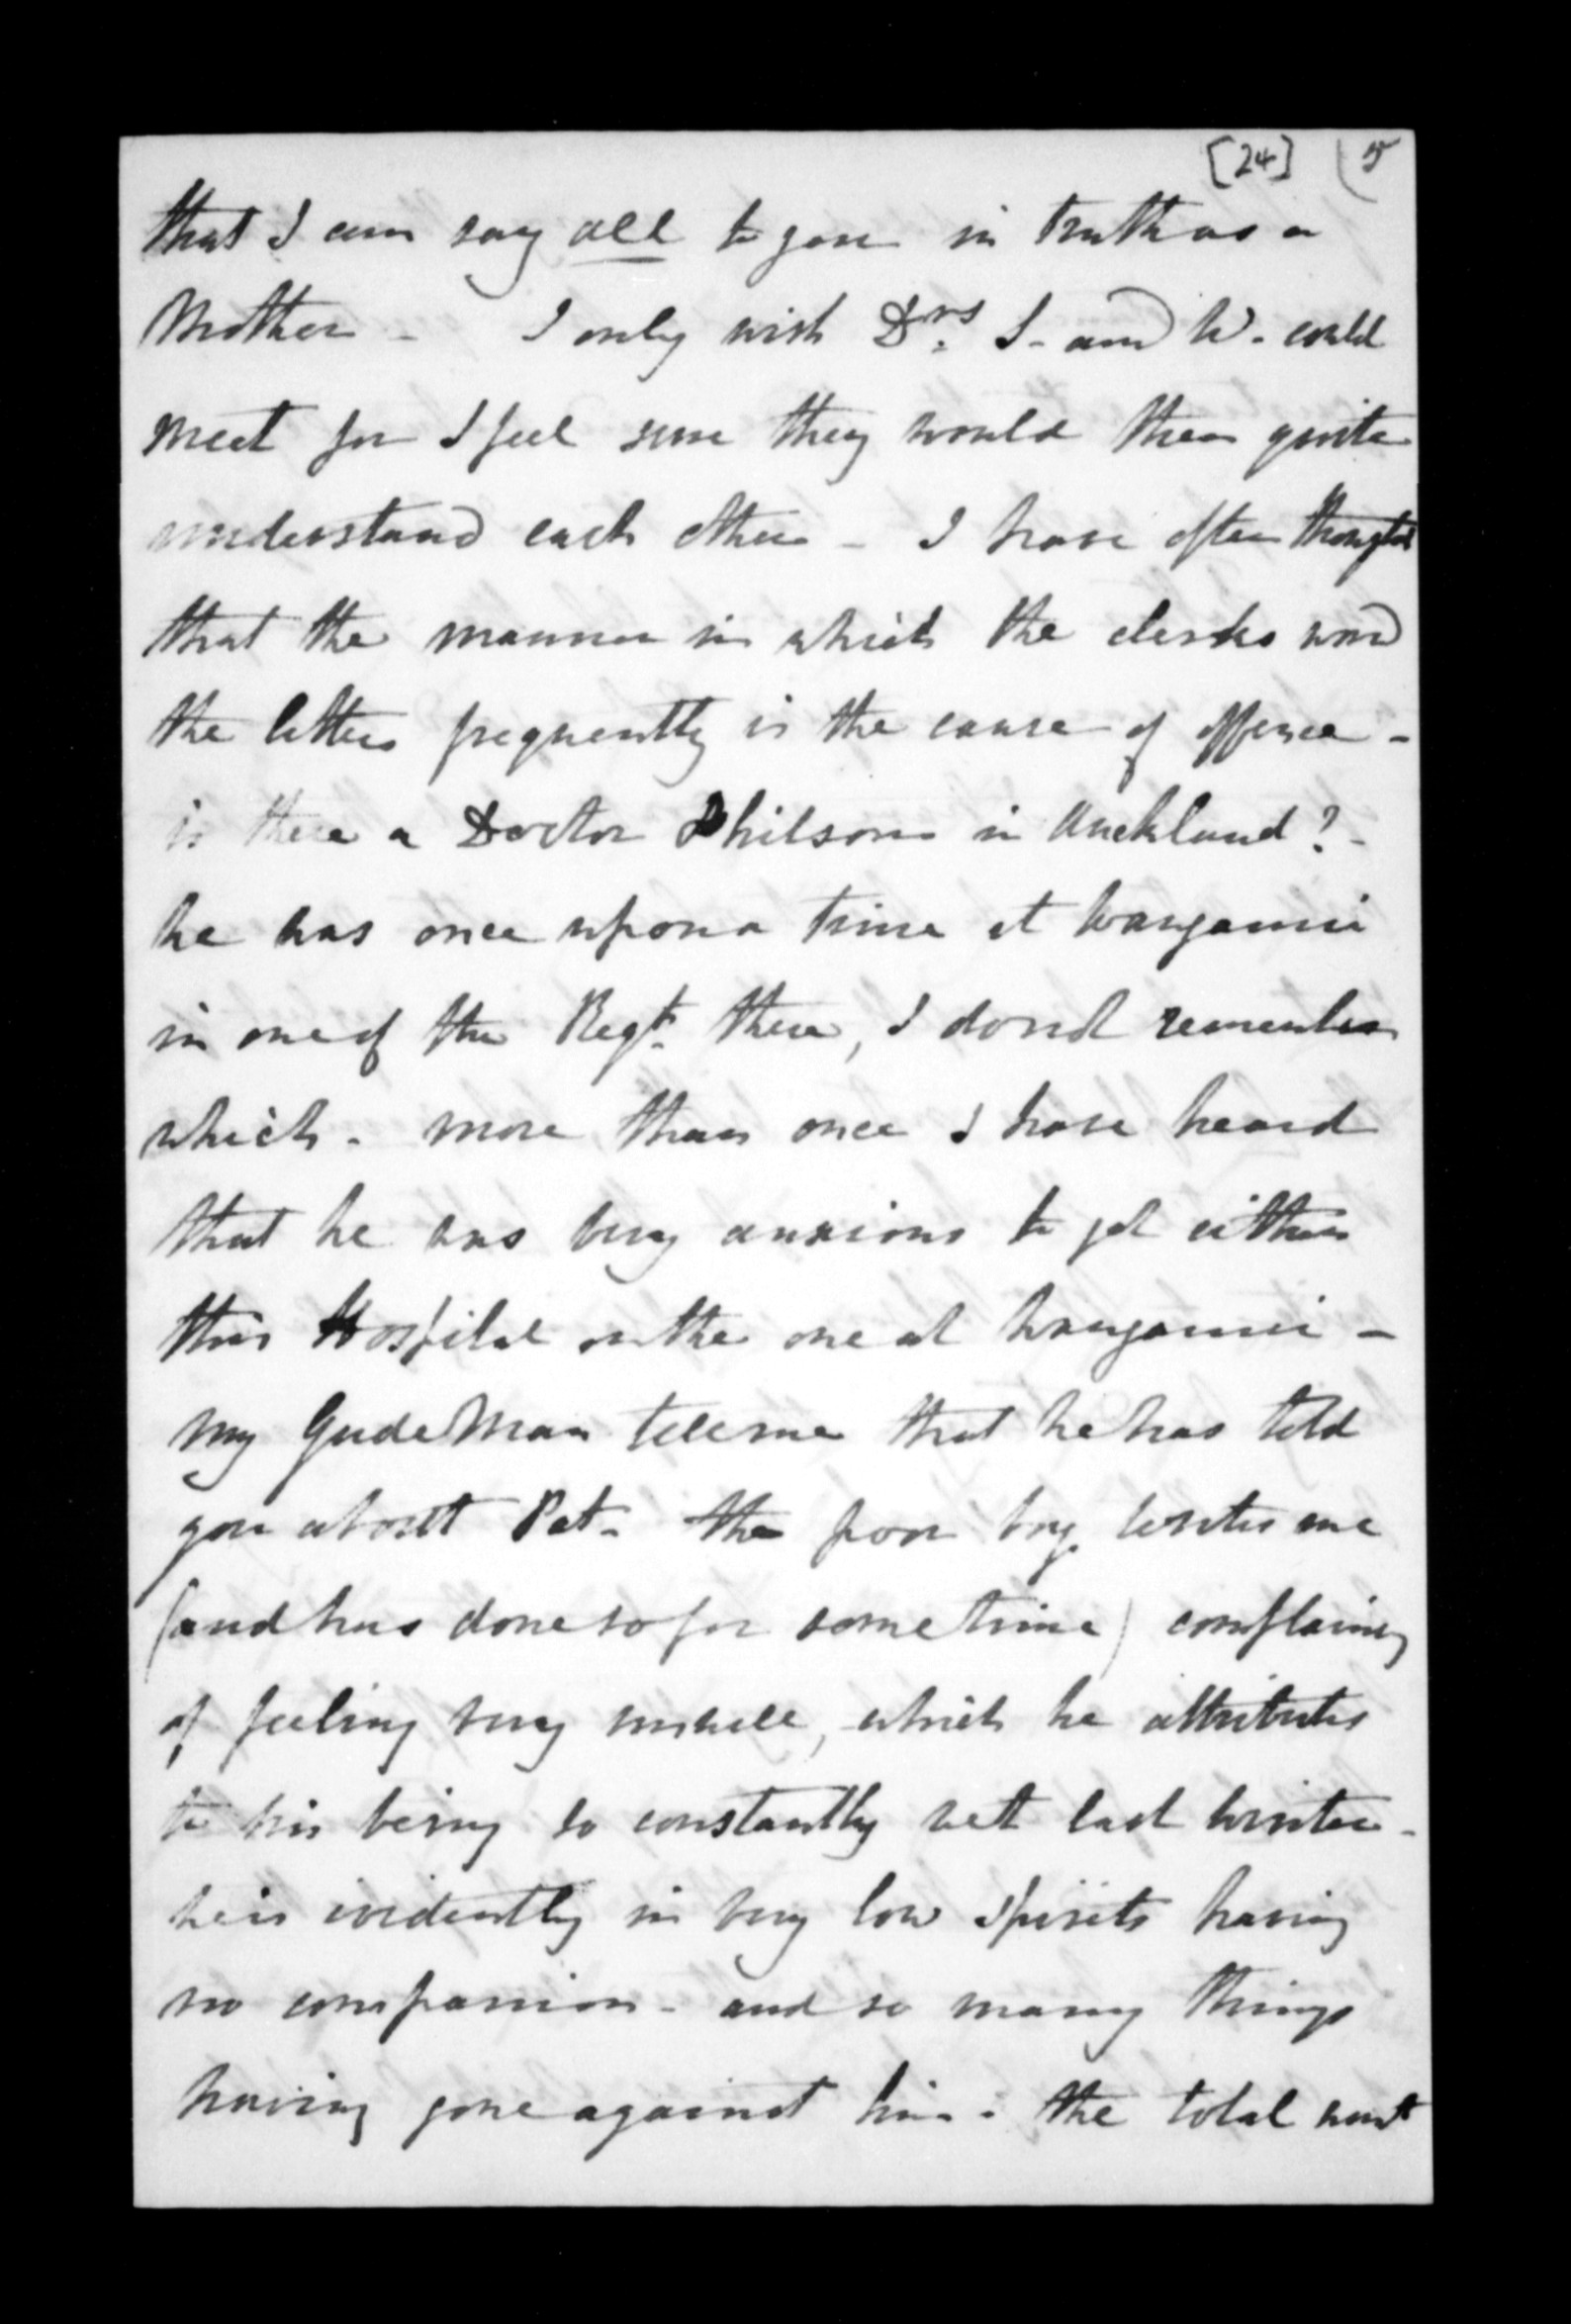 [24] (5
that I can say all to you in truth as a
Mother - I only wish Drs. S. and W. could
meet for I feel sure they would then quite
understand each other - I have often thought
that the manner in which the clerks word
the letters frequently is the cause of offence -
is there a Doctor Philson in Auckland? -
he was once upon a time at Wanganui
in one of the Regts. there, I do not remember
which - more than once I have heard
that he was very anxious to get either
this Hospital or the one at Wanganui -
my Gude Man tells me that he has told
you about Pat - the poor boy writes me
(and has done so for some time) complaining
of feeling very unwell, which he attributes
to his being so constantly wet last winter -
he is evidently in very low spirits having
no companion - and so many things
having gone against him - the total want